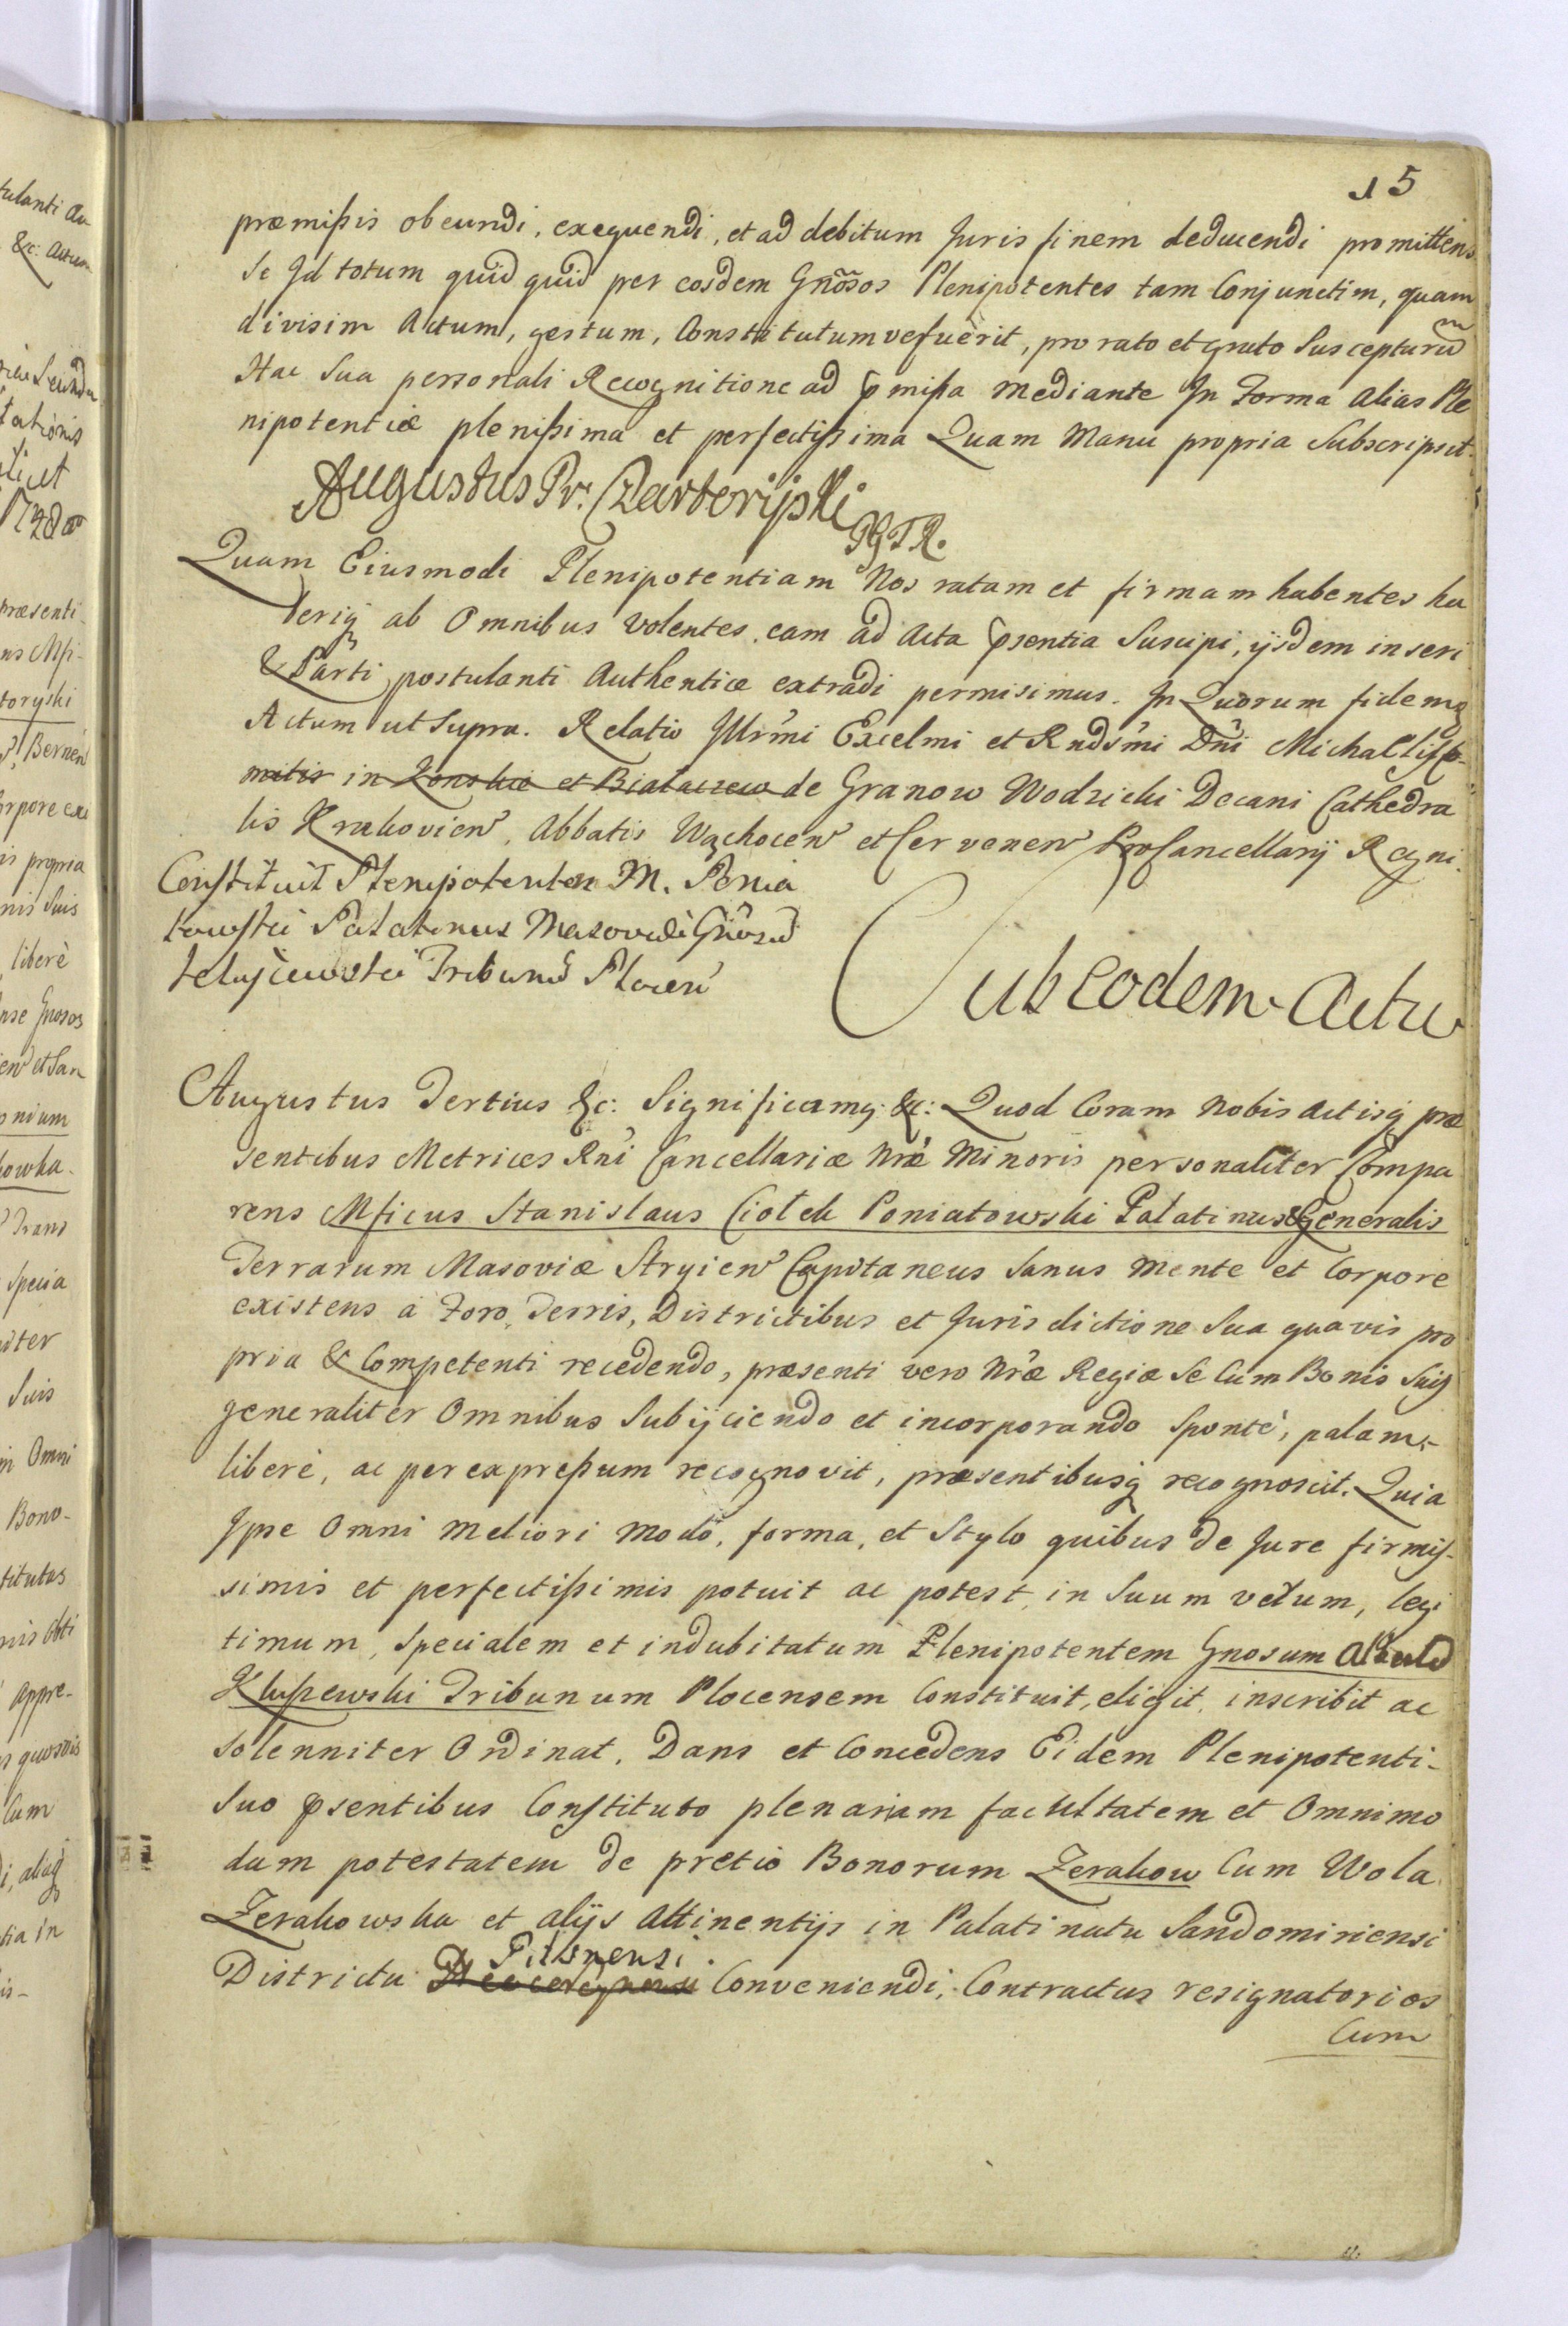 15
præmißis obeundi, exequendi, et ad debitum Juris finem deducendi promittens
Se Id totum quid quid per eosdem Gñosos Plenipotentes tam Conjunctim, quam
divisim Actum, gestum, Constitutumve fuerit, pro rato et grato Suscepturũ
Hac Sua personali Recognitione ad pmißa mediante In Forma alias Ple
nipotentiæ plenißima et perfectißima Quam Manu propria Subscripsit.
Augustus Pr: Czartoryski
PGTR.
Quam Eiusmodi Plenipotentiam Nos ratam et firmam habentes ha
beriq ab Omnibus Volentes, eam ad Acta psentia Suscipi, ijsdem inseri
& Parti postulanti Authentice extradi permisimus. In Quorum fidemq
Actum ut Supra. Relatio Illrmi Excelmi et Rndsmi Dñi Michaelis
mitis in Konskie et Białaczew de Granow Wodzicki Decani Cathedra
lis Krakovien, Abbatis Wąchocen et Cervenen ProCancellarij Regni.
Constituit Plenipotenten M. Ponia
towski Palatinus Masoviæ Gñosũ
Tribunũ Plocen
Sub eodem Actu
Augustus Tertius &c: Significamq: &c: Quod Coram Nobis Actisq præ
sentibus Metrices Rni Cancellariæ Nræ Minoris personaliter Compa
rens Mficus Stanislaus Ciołek Poniatowski Palatinus & Generalis
Terrarum Masoviæ Stryien Capitaneus Sanus mente et Corpore
existens a Foro, Terris, Districtibus et Jurisdictione Sua quavis pro
pria & Competenti recedendo, præsenti vero Nræ Regiæ Se Cum Bonis Suis
generaliter Omnibus Subijciendo et incorporando Sponte, palam,
liberè, ac per expreßum recognovit, præsentibusq recognoscit. Quia
Ipse Omni Meliori Modo, forma, et Stylo quibus de Jure firmis-
simis et perfectißimis potuit ac potest, in Suum verum, legi
timum, Specialem et indubitatum Plenipotentem Gnosum
Kluszewski Tribunum Plocensem Constituit, eligit, inscribit ac
Solenniter Ordinat, Dans et Concedens Eidem Plenipotenti-
Suo psentibus Constituto plenariam facultatem et Omnimo
dam potestatem de pretio Bonorum Zerakow Cum Wola
Zerakowska et alijs Attinentijs in Palatinatu Sandomiriensi
Pilsnensi
Districtu Conveniendi, Contractus resignatorios
Cum